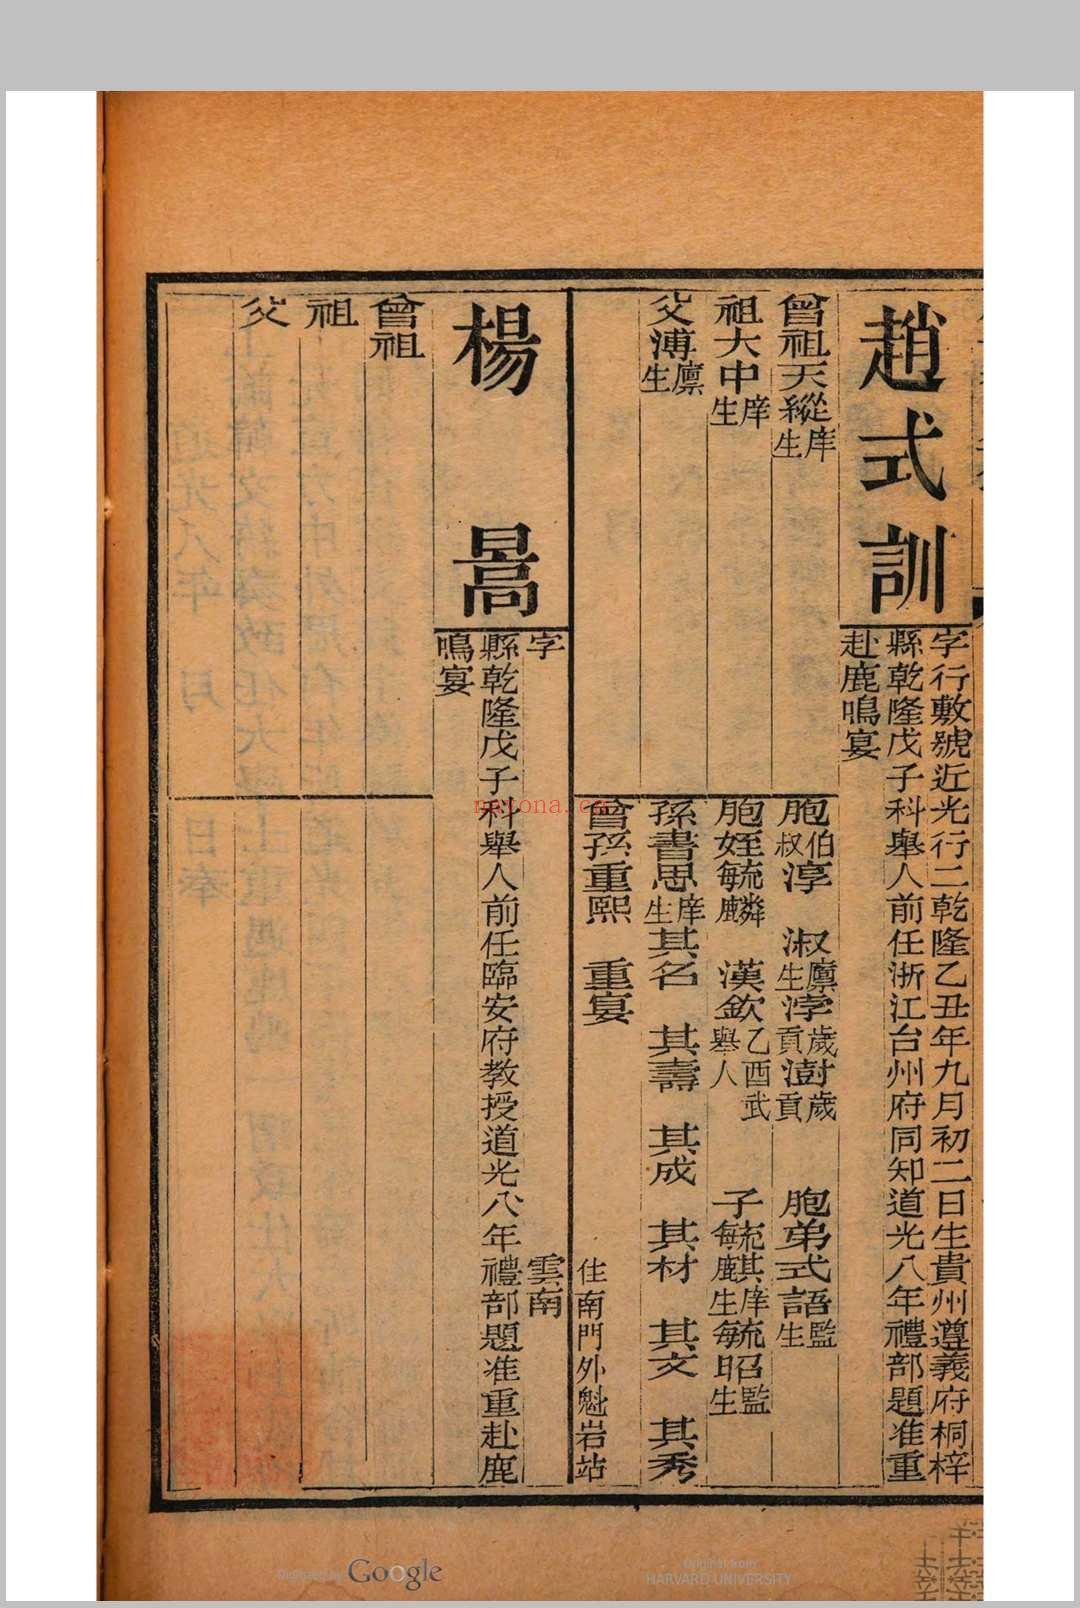 趙式訓
字行敷號近光行二乾隆乙丑年九月初二日生貴州遵義府桐梓
縣乾隆戊子科舉人前任浙江台州府同知道光八年禮部題准重
赴鹿鳴宴
曾祖天縱庠生
祖大中庠生
父溥廩生
胞伯叔淳 淑廩生 浡歲貢 澍歲貢 胞弟式語監生
胞姪毓麟 漢欽乙酉武舉人 子毓麒庠生 毓昭監生
孫書思庠生 其名 其壽 其成 其材 其文 其秀
曾孫重熙 重宴
住南門外魁岩站
楊暠
字 雲南
縣乾隆戊子科舉人前任臨安府教授道光八年禮部題准重赴鹿
鳴宴
曾祖
祖
父
nacona.cn
Digitized by Google
Original from
HARVARD UNIVERSITY